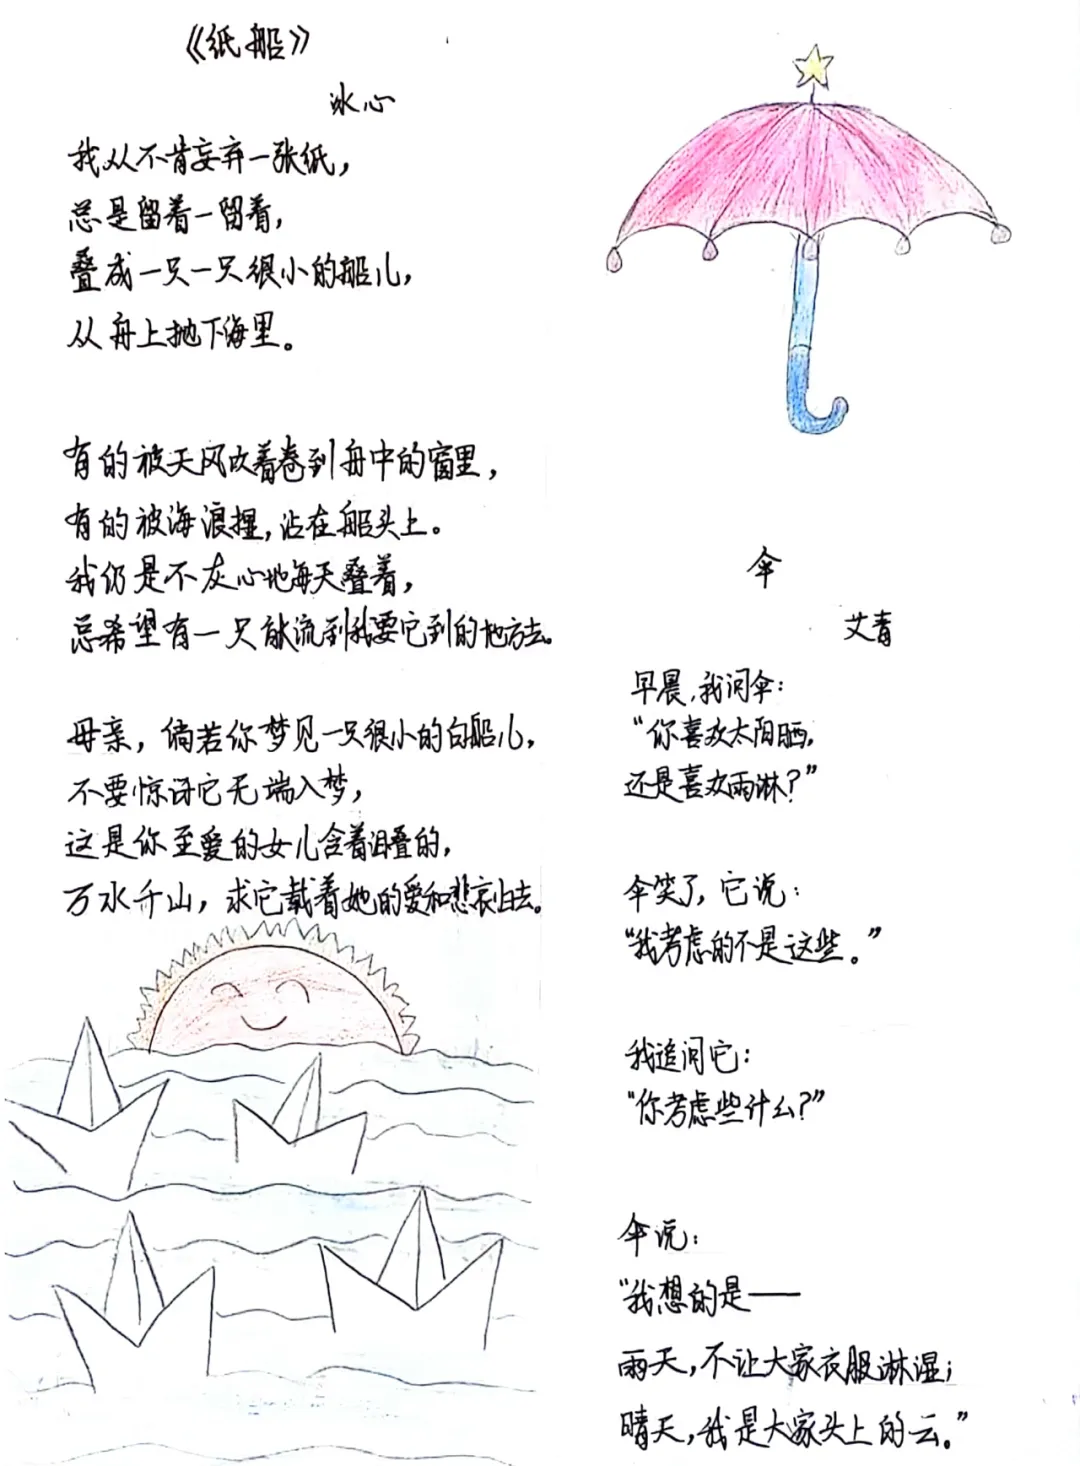 《纸船》
冰心
我从不肯妄弃一张纸，
总是留着一留着，
叠成一只一只很小的船儿，
从舟上抛下海里。
有的被天风吹着卷到舟中的窗里，
有的被海浪捏，沾在船头上。
我仍是不灰心地每天叠着，
总希望有一只能流到我要它到的地方去。
母亲，倘若你梦见一只很小的白船儿，
不要惊讶它无端入梦，
这是你至爱的女儿含着泪叠的，
万水千山，求它载着她的爱和悲哀归去。
伞
艾青
早晨，我问伞：
“你喜欢太阳晒，
还是喜欢雨淋？”
伞笑了，它说：
“我考虑的不是这些。”
我追问它：
“你考虑些什么？”
伞说：
“我想的是——
雨天，不让大家衣服淋湿；
晴天，我是大家头上的云。”